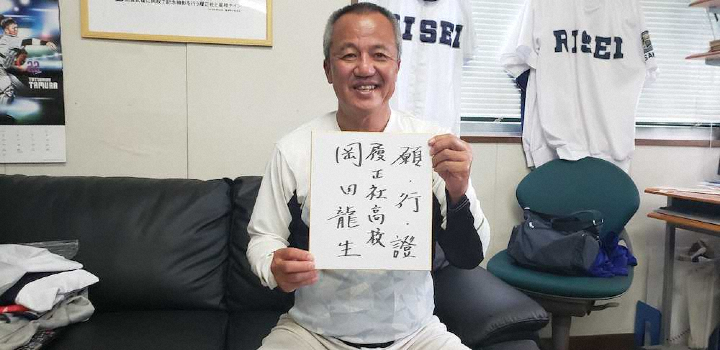 TAMURA
RISEI
RISEI
願・行・證
履正社高校
岡田龍生